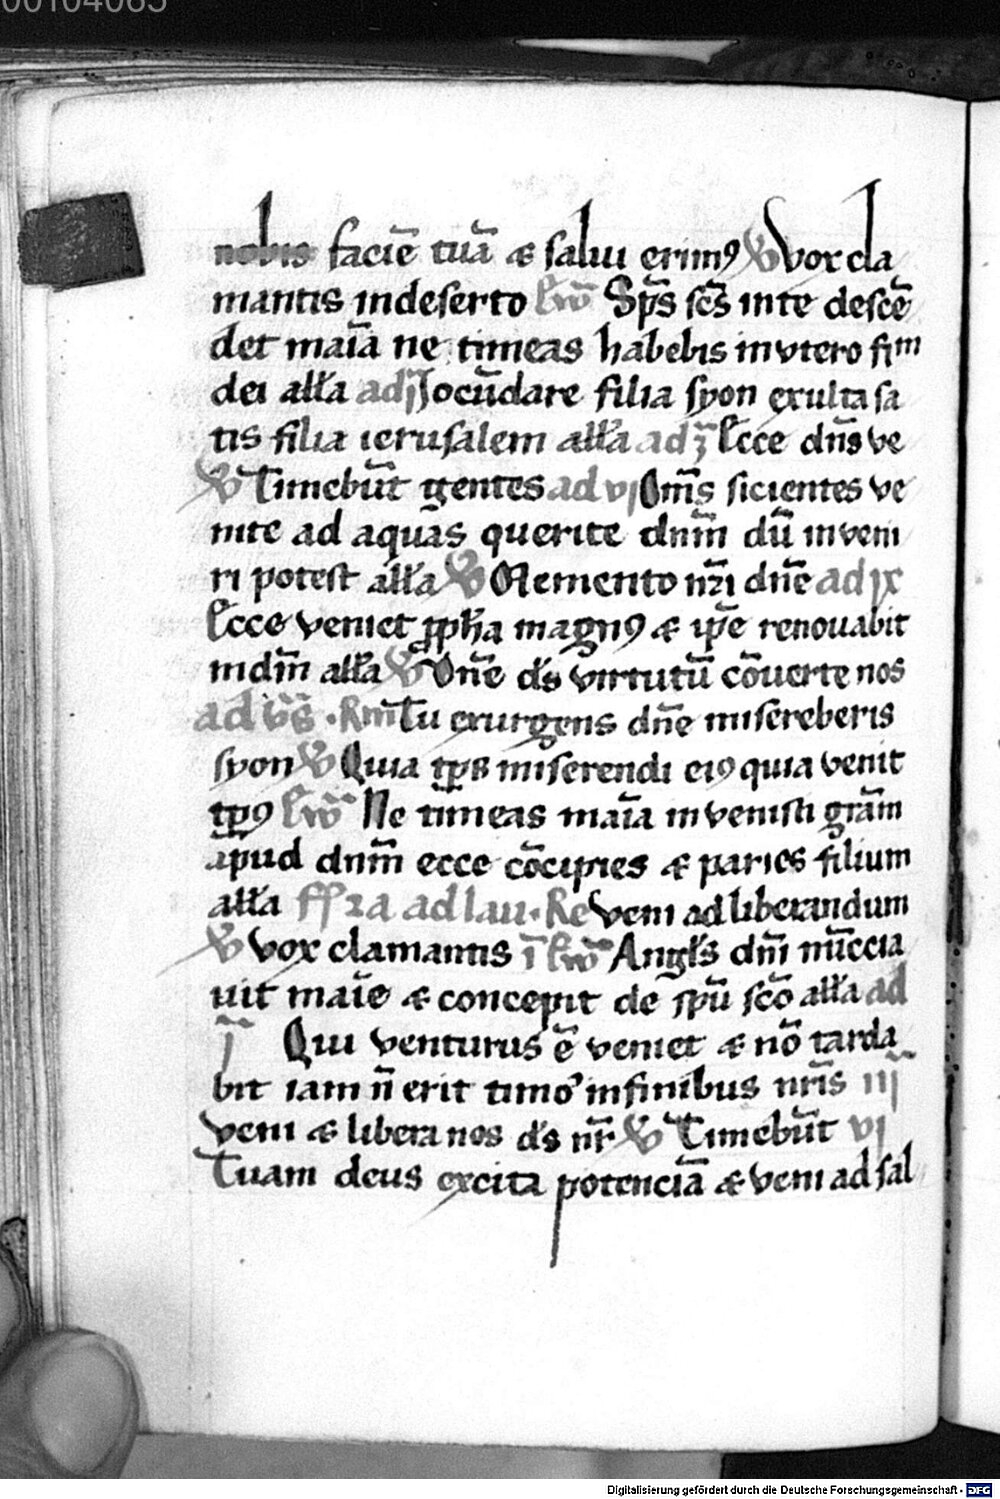 00104085
nobis faciē tuā ⁊ salui erimꝯ ℣ vox cla
mantis in deserto Ew̄ Sp̄s sc̄s in te descē
det maīa ne timeas habebis in vtero fim
dei all̄a ad j Jocūdare filia syon exulta sa
tis filia ierusalem all̄a ad Ecce dn̄s ve
℣ Timebūt gentes ad vj Om̄s sicientes ve
nite ad aquas querite dn̄m dū inveni
ri potest all̄a ℣ Memento nr̄i dn̄e ad ix
Ecce veniet ꝓph̄a magnꝯ ⁊ ip̄e renouabit
Ew̄ Ne timeas maīa invenisti grām
apud dn̄m ecce cōcipies ⁊ paries filium
all̄a ad lau. Re Veni ad liberandum
℣ vox clamantis ī Ew̄ Angl̄s dn̄i nūccia
uit maīe ⁊ concepit de sp̄u sc̄o all̄a ad
j Qui venturus ē veniet ⁊ nō tarda
bit iam n̄ erit timoʾ in finibus nr̄is iij
veni ⁊ libera nos d̄s nr̄ ℣ Timebūt vj
Tuam deus excita potenciā ⁊ veni ad sal
Digitalisierung gefördert durch die Deutsche Forschungsgemeinschaft - DFG